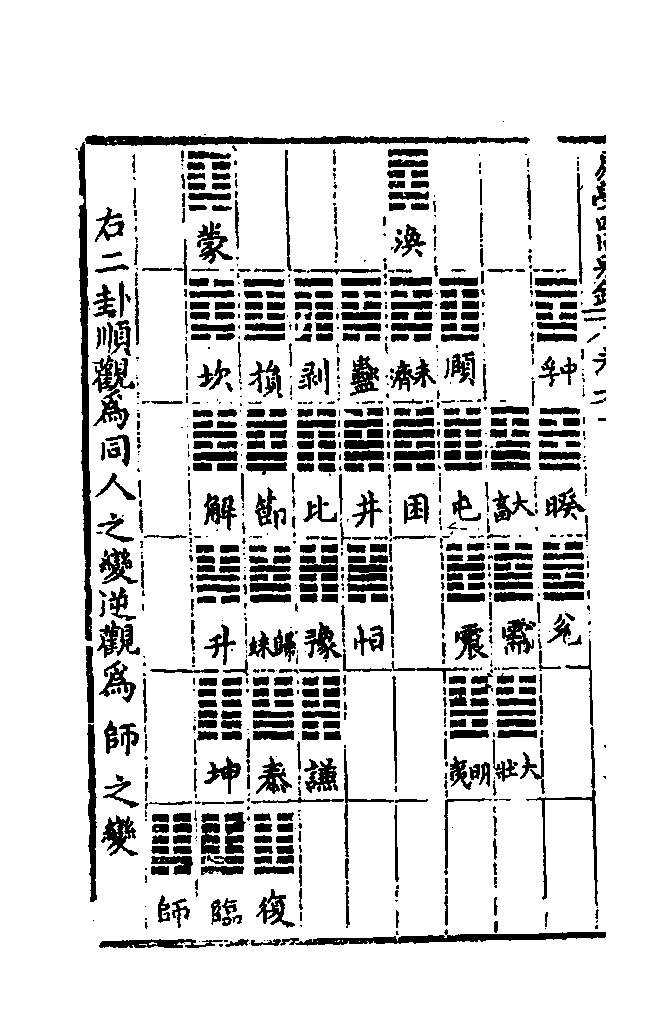 中孚 睽 兊
大畜 需 大壯
頤 屯 震 明夷
渙 未濟 困
蠱 井 恒
剥 比 豫 謙
損 節 歸妹 泰 復
蒙 坎 解 升 坤 臨
師
右二卦順觀爲同人之變逆觀爲師之變